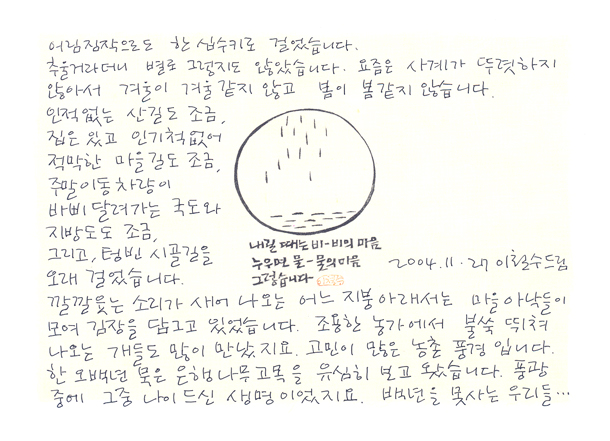 어림짐작으로도 한 십수키로 걸었습니다.
추울거라더니 별로 그렇지도 않았습니다. 요즘은 사계가 뚜렷하지
않아서 겨울이 겨울 같지 않고 봄이 봄 같지 않습니다.
인적없는 산길도 조금,
집은 있고 인기척 없어
적막한 마을길도 조금,
주말이동차량이
바삐 달려가는 국도와
지방도도 조금,
그리고, 텅빈 시골길을
오래 걸었습니다.
내릴 때는 비-비의 마음
누우면 물-물의 마음
그렇습니다
2004.11.27 이철수드림
깔깔웃는 소리가 새어 나오는 어느 지붕아래서는 마을아낙들이
모여 김장을 담그고 있었습니다. 조용한 농가에서 불쑥 뛰쳐
나오는 개들도 많이 만났지요. 고민이 많은 농촌 풍경입니다.
한 오백년 묵은 은행나무고목을 유심히 보고 왔습니다. 풍광
중에 그중 나이드신 생명이었지요. 백년을 못사는 우리들…